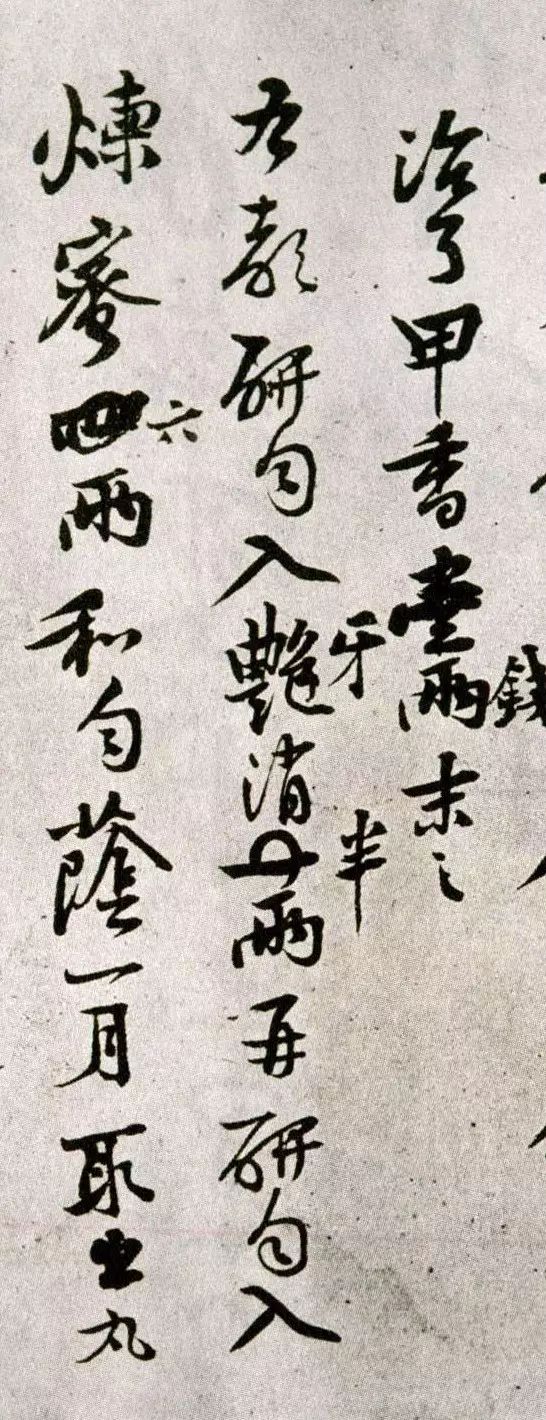 治了甲香壹兩錢末之
右都研匀入艷牙消半兩再研匀入
煉蜜六兩和匀蔭一月取出丸